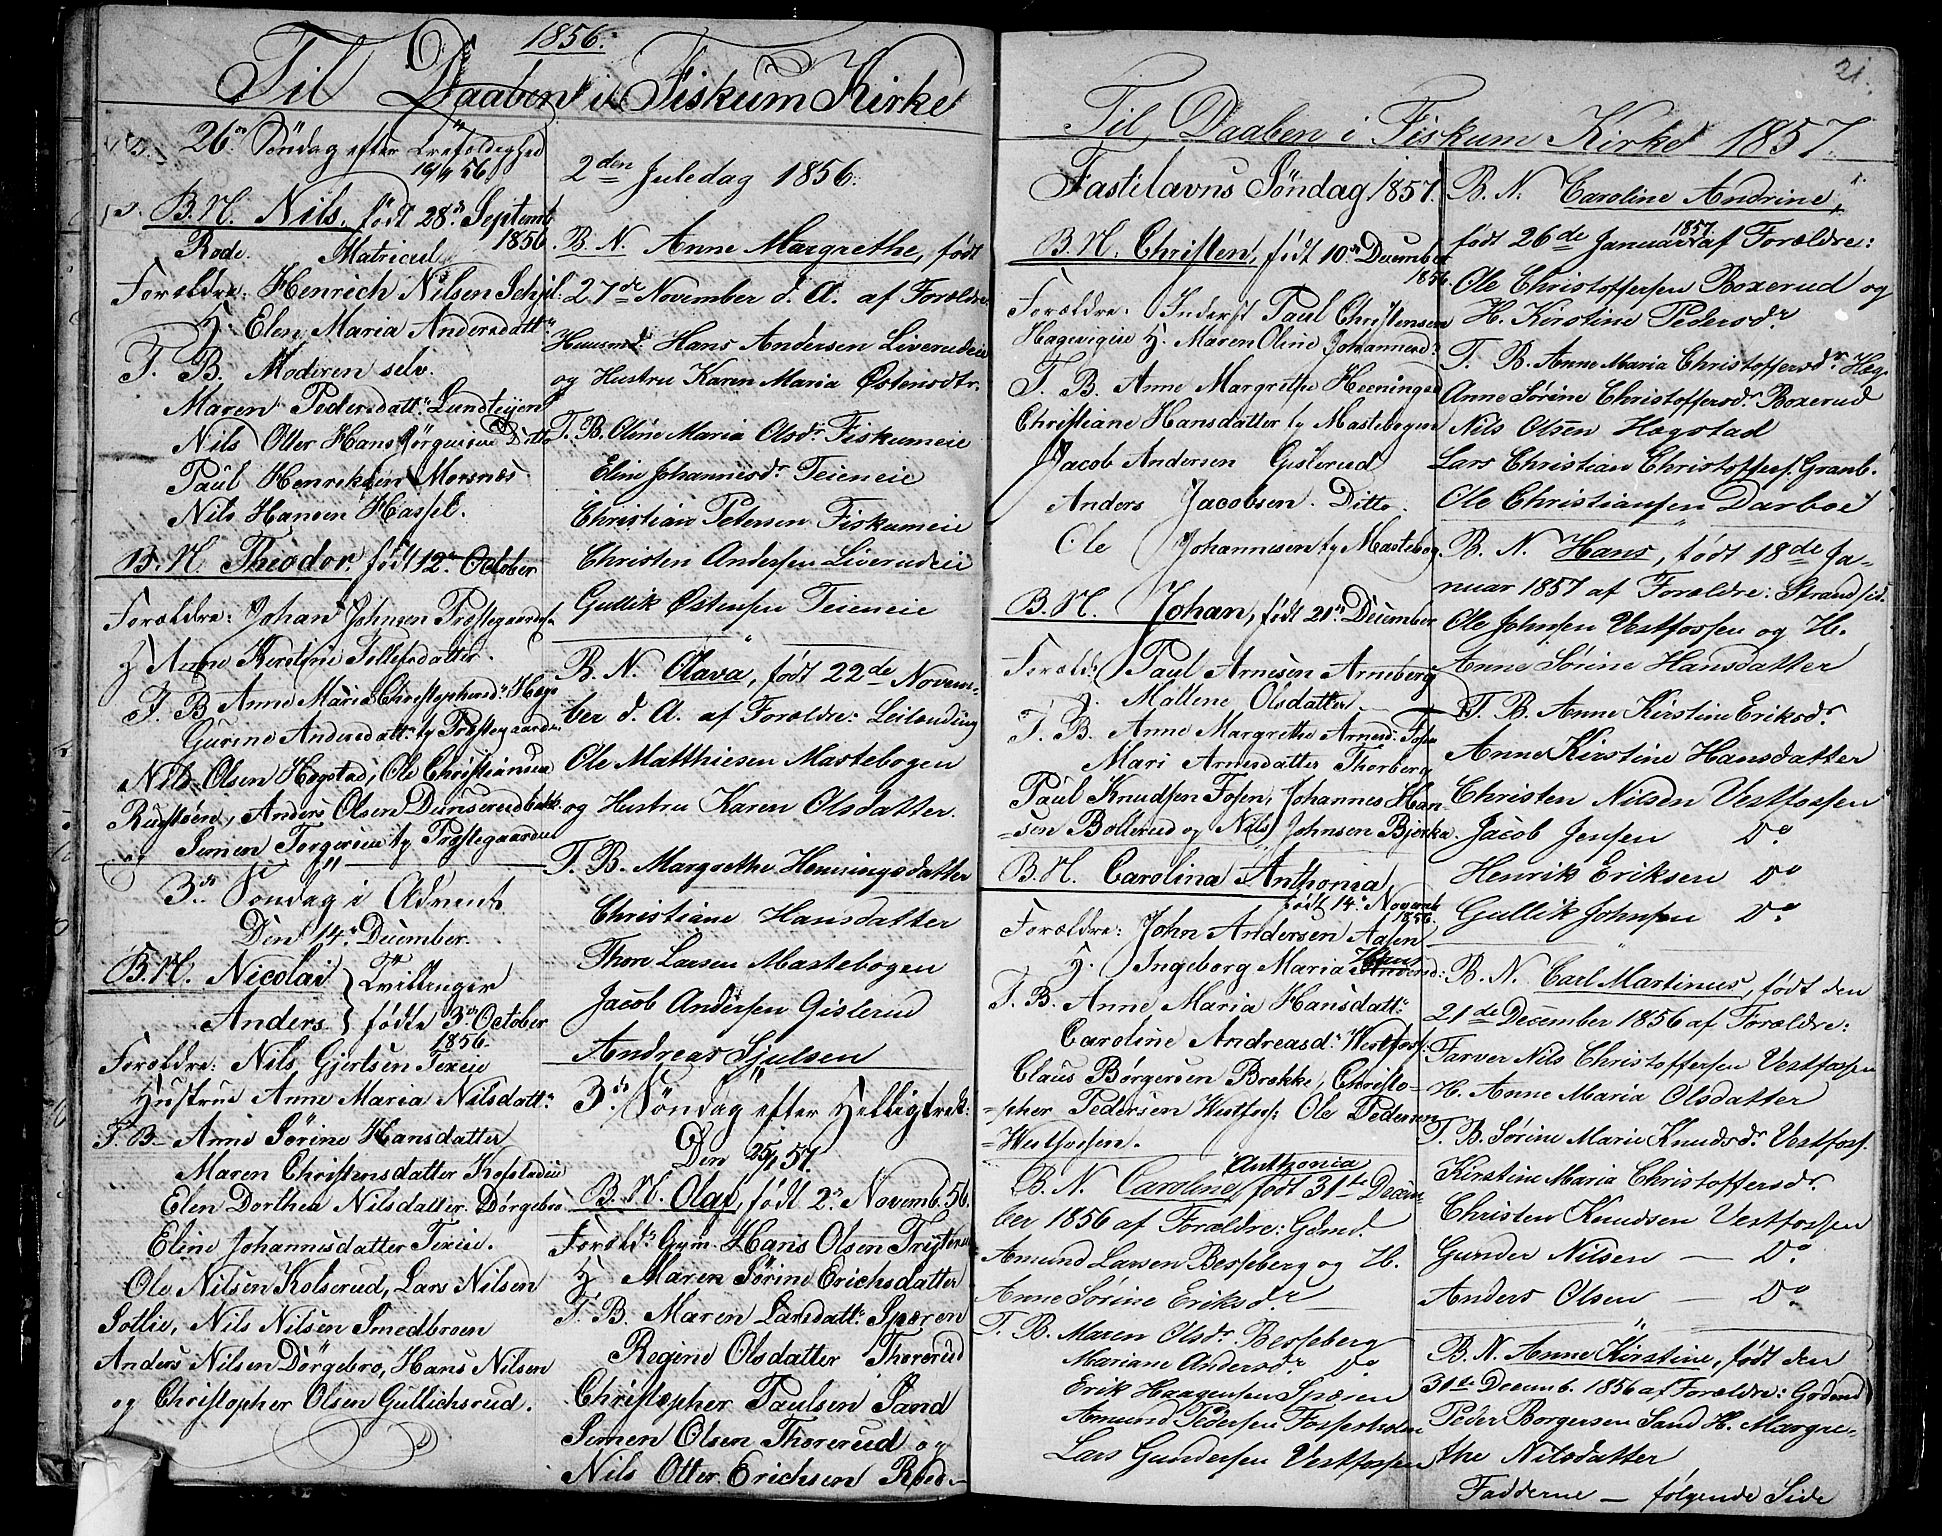 1856.
Til Daaben i Fiskum Kirke
26de Søndag efter Trefoldighed
16/11 56.
B. N. Nils, født 28de Septemb
1856
Rode. Matricul
Forældre: Henrich Nilsen
H. Elen Maria Andersdattr
T. B. Moderen selv.
Maren Pedersdattr Lundteijen
Nils Otter Hans Jørgensen Ditto
Paul Henriksen Morsnæs
Nils Hansen Hassel.
B. N. Theodor, født 12te October
Forældre: Johan Johnsen Præstegaardse
H. Anne Kirstine Tollefsdatter.
T. B. Anne Maria Christophersdr Hægs
Gurine Andersdattr ty Præstegaarden
Nils Olsen Hægstad, Ole Christiansen
Rustøen, Anders Olsen Dunserudbakk.
og Simen Torgersen ty Præstegaarden
3de Søndag i Advent
Den 14de December.
B. N. Nicolai } Tvillinger
Anders } fødte 3de October
1856.
Forældre: Nils Gjertsen Teieie
Hustrue Anne Maria Nilsdattr
T. B. Anne Sørine Hansdatter
Maren Christensdatter Kopstadeie
Elen Dorthea Nilsdatter Dørgebro
Eline Johannesdatter Teieie.
Ole Nilsen Kolserud, Lars Nilsen
Sotlie, Nils Nilsen Smedbroen
Anders Nilsen Dørgebro, Hans Nilsen
og Christopher Olsen Gullichsrud.
2den Juledag 1856.
B. N. Anne Margrethe, født
27de November d. A. af Forældre
Huusmd. Hans Andersen Liverudeie
og Hustru Karen Maria Østensdtr.
T. B. Oline Maria Olsdr. Fiskumeie
Elin Johannesdr. Teieneie
Christian Petersen Fiskumeie
Christen Andersen Liverudeie
Gullik Østensen Teieneie
B. N. Olava, født 22de Novem-
ber d. A. af Forældre: Leilænding
Ole Matthiesen Mastebogen
og Hustru Karen Olsdatter.
T. B. Margrethe Henningsdatter
Christiane Hansdatter
Thore Larsen Mastebogen
Jacob Andersen Gislerud
Andreas Sjulsen
3de Søndag efter Helligtrek:
Den 25/1 57.
B. N. Olaf, født 2de Novemb. 56.
Foræld: Gym. Hans Olsen Tryterud
H. Maren Sørine Erichsdatter
T. B. Maren Larsdattr Spæren
Regine Olsdatter Thorerud
Christopher Paulsen Sand
Simen Olsen Thorerud og
Nils Otter Erichsen Roed.
21.
Til Daaben i Fiskum Kirke 1857.
Fastelavns Søndag 1857.
B. N. Christen, født 10de December
1856
Forældre: Inderst Paul Christensen
Hageviqeie H. Maren Oline Johannesdr
T. B. Anne Margrethe Henningsd
Christiane Hansdatter ty Mastebogen
Jacob Andersen Gislerud
Anders Jacobsen. Ditto.
Ole Johannesen ty Mastebog.
B. N. Johan, født 21de December
Foræld: Paul Arnesen Arneberg
H. Mallene Olsdatter
T. B. Anne Margrethe Arnesd. Fosen
Mari Arnesdatter Thorberg
Paul Knudsen Fosen, Johannes Han-
sen Bollerud og Nils Johnsen Bjerka.
B. N. Carolina Anthonia,
født 14de Novemb
1856.
Forældre: John Andersen Aasen
Hans
H. Ingeborg Maria Andersd:
T. B. Anne Maria Hansdattr
Caroline Andreasd. Westfos:
Claus Børgersen Brække, Christo-
pher Pedersen Westfos: Ole Pedersen
Westfossen.
Anthonia
B. N. Caroline, født 31te Decem-
ber 1856 af Forældre: Gdmd.
Amund Larsen Besseberg og H.
Anne Sørine Eriksdr
T. B. Maren Olsdr. Besseberg
Mariane Andersdr. Do
Erik Haagensen Spæren
Amund Pedersen Fossesholm
Lars Gundersen Vestfossen
B. N. Caroline Andrine,
1857.
født 26de Januar af Forældre:
Ole Christoffersen Boxerud og
H. Kirstine Pedersdr.
T. B. Anne Maria Christoffersdr Hægs.
Anne Sørine Christoffersdr. Boxerud
Nils Olsen Hægstad
Lars Christian Christoffers. Granb.
Ole Christiansen Darboe
B. N. Hans, født 18de Ja-
nuar 1857 af Forældre: Strandsid.
Ole Johnsen Vestfossen og H.
Anne Sørine Hansdatter
T. B. Anne Kirstine Eriksdr.
Anne Kirstine Hansdatter
Christen Nilsen Vestfossen
Jacob Jensen Do
Henrik Eriksen Do
Gullik Johnsen Do
B. N. Carl Martinius, født den
21de December 1856 af Forældre:
Farver Nils Christoffersen Vestfossen
H. Anne Maria Olsdatter
T. B. Sørine Marie Knudsdr. Vestfoss.
Kirstine Maria Christoffersdr.
Christen Knudsen Vestfossen
Gunder Nilsen — Do
Anders Olsen — Do
B. N. Anne Kirstine, født den
31te Decemb. 1856 af Forældre: Gdmd
Peder Borgersen Sand H. Margre-
the Nilsdatter
Fadderne — følgende Side